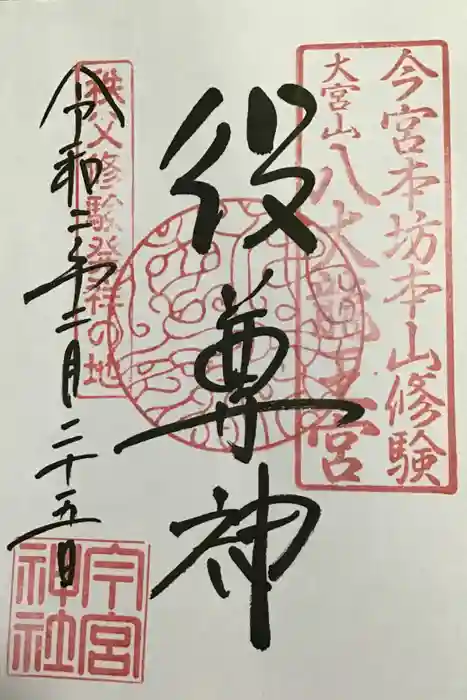 今宮本坊本山修験
大宮山八大龍王宮
役尊神
秩父修験発祥の地
令和二年二月二十五日
今宮
神社